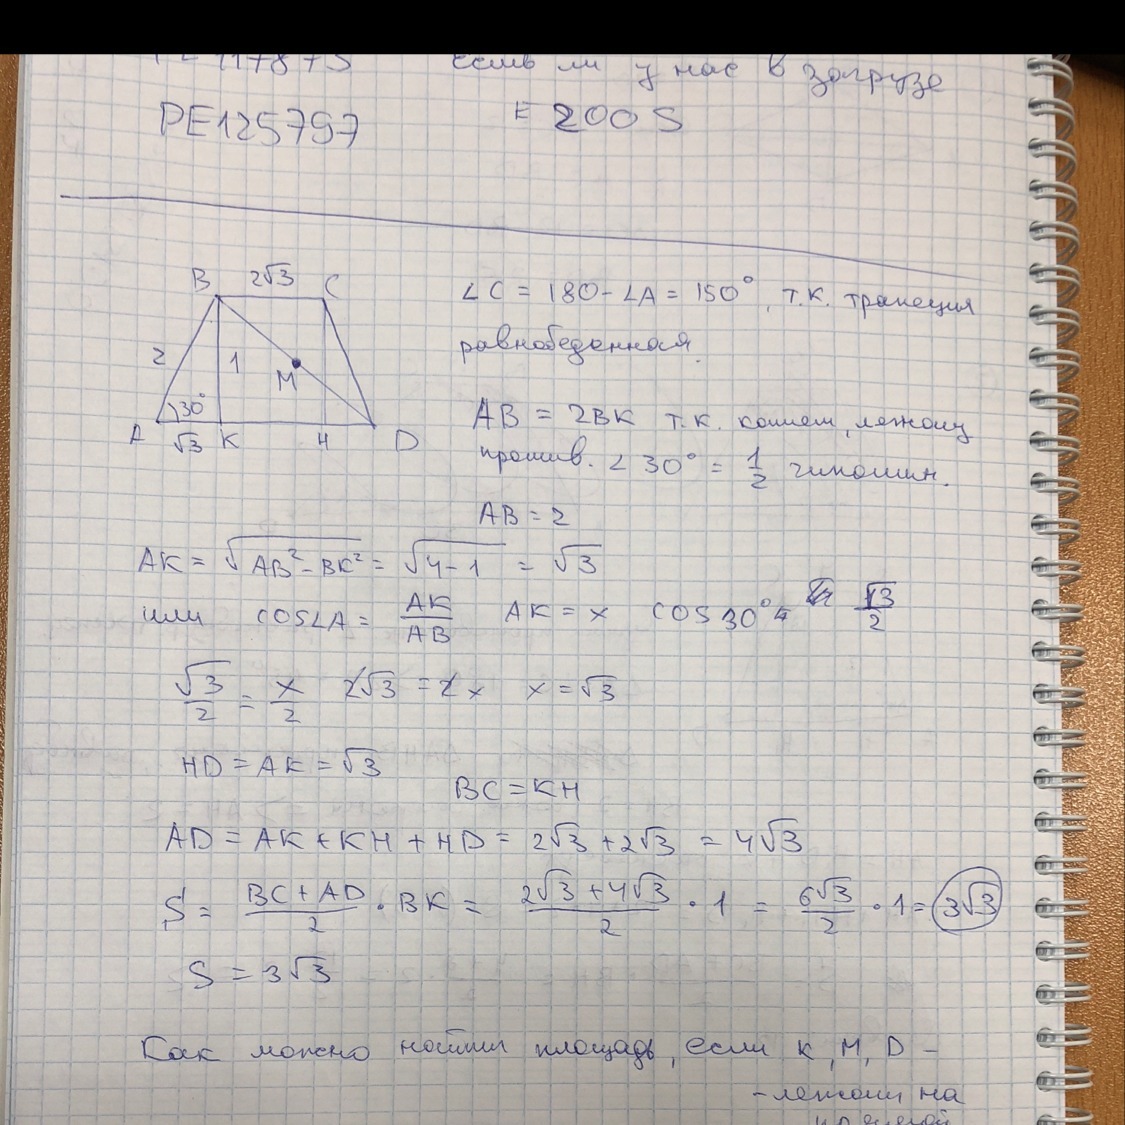 если ли у нас в загрузе
PE125797
F 200S
B 2√3 C
2
1
M
30°
A √3 K H D
∠C = 180 - ∠A = 150°, т.к. трапеция
равнобеденная.
AB = 2BK т.к. катет, лежащ
против. ∠ 30° = 1/2 гипотин.
AB = 2
AK = √(AB² - BK²) = √(4-1) = √3
или cos∠A = AK/AB AK = x cos 30° = √3/2
√3/2 = x/2 2√3 = 2x x = √3
HD = AK = √3
BC = KH
AD = AK + KH + HD = 2√3 + 2√3 = 4√3
S = (BC + AD)/2 · BK = (2√3 + 4√3)/2 · 1 = 6√3/2 · 1 = 3√3
S = 3√3
Как можно найти площадь, если K, M, D -
- лежат на
прямой